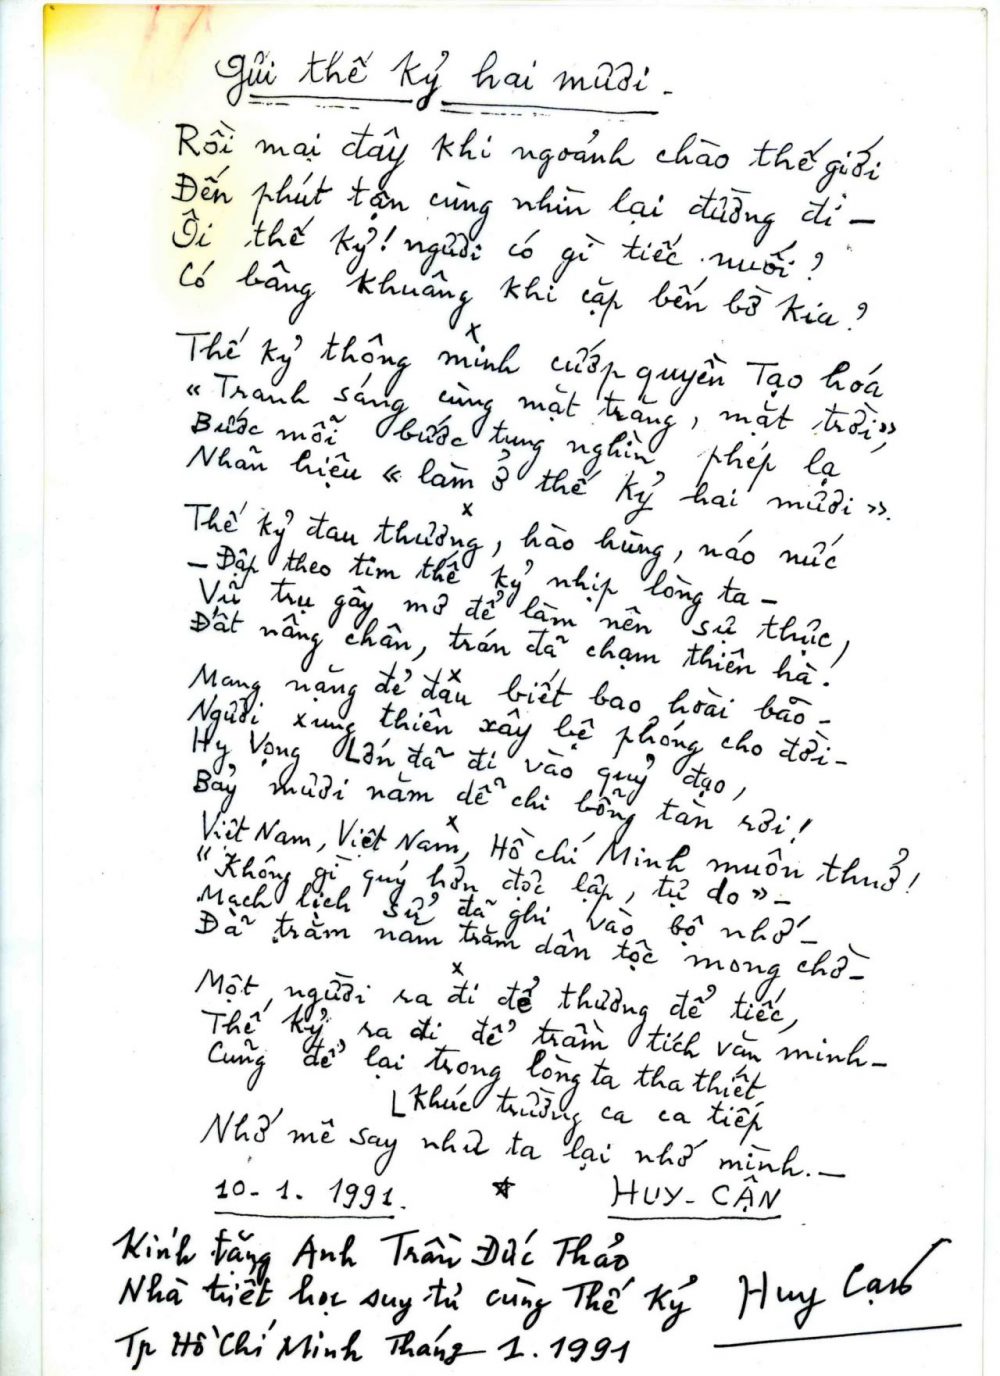 Gửi thế kỷ hai mươi -
Rồi mai đây khi ngoảnh chào thế giới
Đến phút tận cùng nhìn lại đường đi -
Ôi thế kỷ! người có gì tiếc nuối?
Có bâng khuâng khi cặp bến bờ kia?
x
Thế kỷ thông minh cướp quyền Tạo hóa
"Tranh sáng cùng mặt trăng, mặt trời",
Bước mỗi bước tung nghìn phép lạ
Nhãn hiệu « làm ở thế kỷ hai mươi ».
x
Thế kỷ đau thương, hào hùng, náo nức
- Đập theo tim thế kỷ nhịp lòng ta -
Vũ trụ gây mơ để làm nên sự thực,
Đất nâng chân, trán đã chạm thiên hà!
x
Mang nặng đẻ đau biết bao hoài bão -
Người xung thiên xây bệ phóng cho đời -
Hy Vọng Lớn đã đi vào quỹ đạo,
Bảy mươi năm dễ chi bỗng tàn rơi!
x
Việt Nam, Việt Nam, Hồ Chí Minh muôn thuở!
"Không gì quý hơn độc lập, tự do" -
Mạch lịch sử đã ghi vào bộ nhớ -
Đã trăm năm trăm dân tộc mong chờ -
x
Một người ra đi để thương để tiếc,
Thế kỷ ra đi để trầm tích văn minh -
Cũng để lại trong lòng ta tha thiết
khúc trường ca ca tiếp
Nhớ mê say như ta lại nhớ mình. -
10-1.1991. HUY-CẬN
Kính tặng Anh Trần Đức Thảo
Nhà triết học suy tư cùng Thế Kỷ
Huy Cận
Tp Hồ Chí Minh Tháng 1.1991